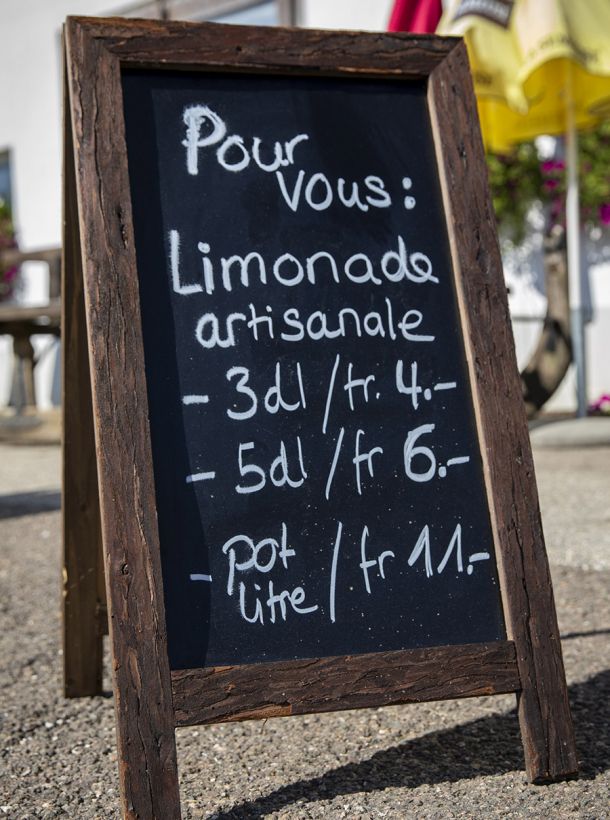 Pour
vous :
Limonade
artisanale
- 3dl / fr. 4.-
- 5dl / fr 6.-
- pot / fr 11.-
litre